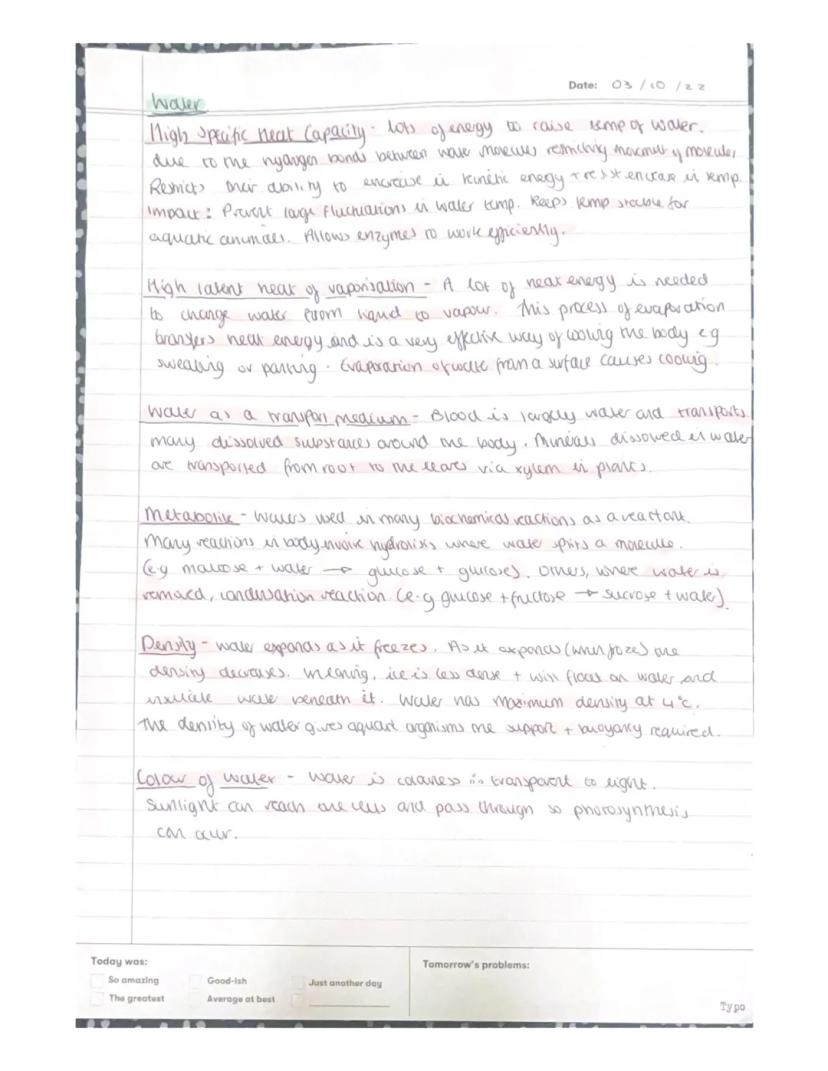 Date: 03/10/22
Water
High Specific Heat Capacity - lots of energy to raise temp of water.
due to the hydrogen bonds between water molecules restricting movement of molecules
Restricts their ability to encrease in kinetic energy + resist encrease in temp.
Impact: Prevent large fluctuations in water temp. Keeps temp stable for
aquatic animals. Allows enzymes to work efficiently.
High latent heat of vaporisation - A lot of heat energy is needed
to change water from liquid to vapour. This process of evaporation
transfers heat energy and is a very effective way of cooling the body eg
sweating or panting. Evaporation of water from a surface causes cooling.
Water as a transport medium - Blood is largely water and transports
many dissolved substances around the body. Minerals dissolved in water
are transported from root to the leaves via xylem in plants.
Metabolite - Water is used in many biochemical reactions as a reactant.
Many reactions in body involve hydrolysis where water splits a molecule.
(e.g maltose + water → glucose + glucose). Others, where water is
removed, condensation reaction (e.g glucose + fructose → sucrose + water).
Density - water expands as it freezes. As it expands (when froze) the
density decreases. Meaning, ice is less dense + will float on water and
insulate water beneath it. Water has maximum density at 4°c.
The density of water gives aquatic organisms the support + buoyancy required.
Colour of water - Water is colourless ∴ transparent to light.
Sunlight can reach the cells and pass through so photosynthesis
can occur.
Today was:
So amazing
Good-ish
Just another day
The greatest
Average at best
Tomorrow's problems:
Typo